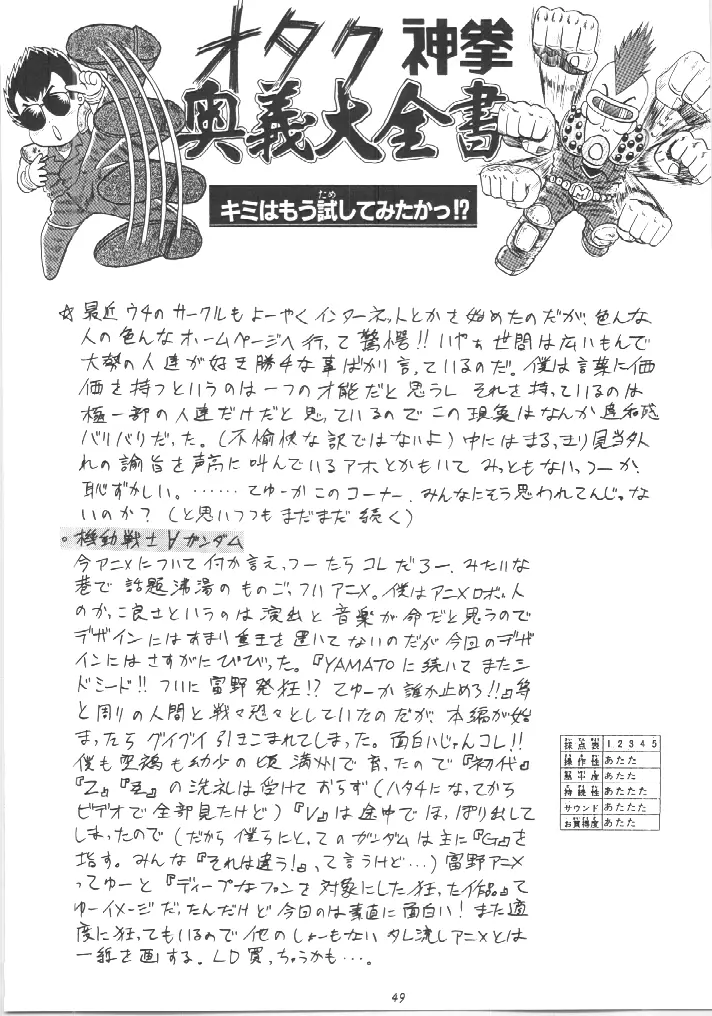 オタク神拳
奥義大全書
キミはもう試してみたかっ!?
ため
☆最近ウチのサークルもよーやくインターネットとかさ始めたのだが、色んな
人の色んなホームページへ行って驚愕!!いやぁ世間は広いもんで
大勢の人達が好き勝手な事ばかり言っているのだ。僕は言葉に価
価を持つというのは一つの才能だと思うし それを持っているのは
極一部の人達だけだと思っているのでこの現実はなんか違和感
バリバリだった。(不愉快な訳ではないよ)中にはまるっきり見当外
れの論旨を声高に叫んでいるアホとかもいてみっともないっつーか、
恥ずかしい。……てゆーかこのコーナー、みんなにそう思われてんじゃな
いのか?(と思いつつもまだまだ続く)
◦機動戦士∀ガンダム
今アニメについて何か言えっつーたらコレだろー、みたいな
巷で話題沸湯のものごっついアニメ。僕はアニメロボットん
のかっこ良さというのは演出と音楽が命だと思うので
デザインにはあまり重きを置いてないのだが今回のデザ
インにはさすがにびびった。『YAMATOに続いてまたシ
ドミード!!ついに富野発狂!?てゆーか誰か止めろ!!』等
と周りの人間と戦々恐々としていたのだが、本編が始
まったらグイグイ引きこまれてしまった。面白いじゃんコレ!!
僕も 幼少の頃満州で育ったので『初代』
『Z』『ZZ』の洗礼は受けておらず(ハタチになってから
ビデオで全部見たけど)『V』は途中でほっぽり出して
しまったので(だから僕らにとってのガンダムは主に『G』を
指す。みんな『それは違う!』って言うけど…)富野アニメ
ってゆーと『ディープなファンを対象にした狂った作品』て
ゆーイメージだったんだけど今回のは素直に面白い!また適
度に狂ってもいるので他のしょーもないタレ流しアニメとは
一線を画する。LD買っちゃうかも…。
採点表 1 2 3 4 5
操作性 あたた
熱中度 あたた
持続性 あたたたた
サウンド あたたた
お買得度 あたた
49